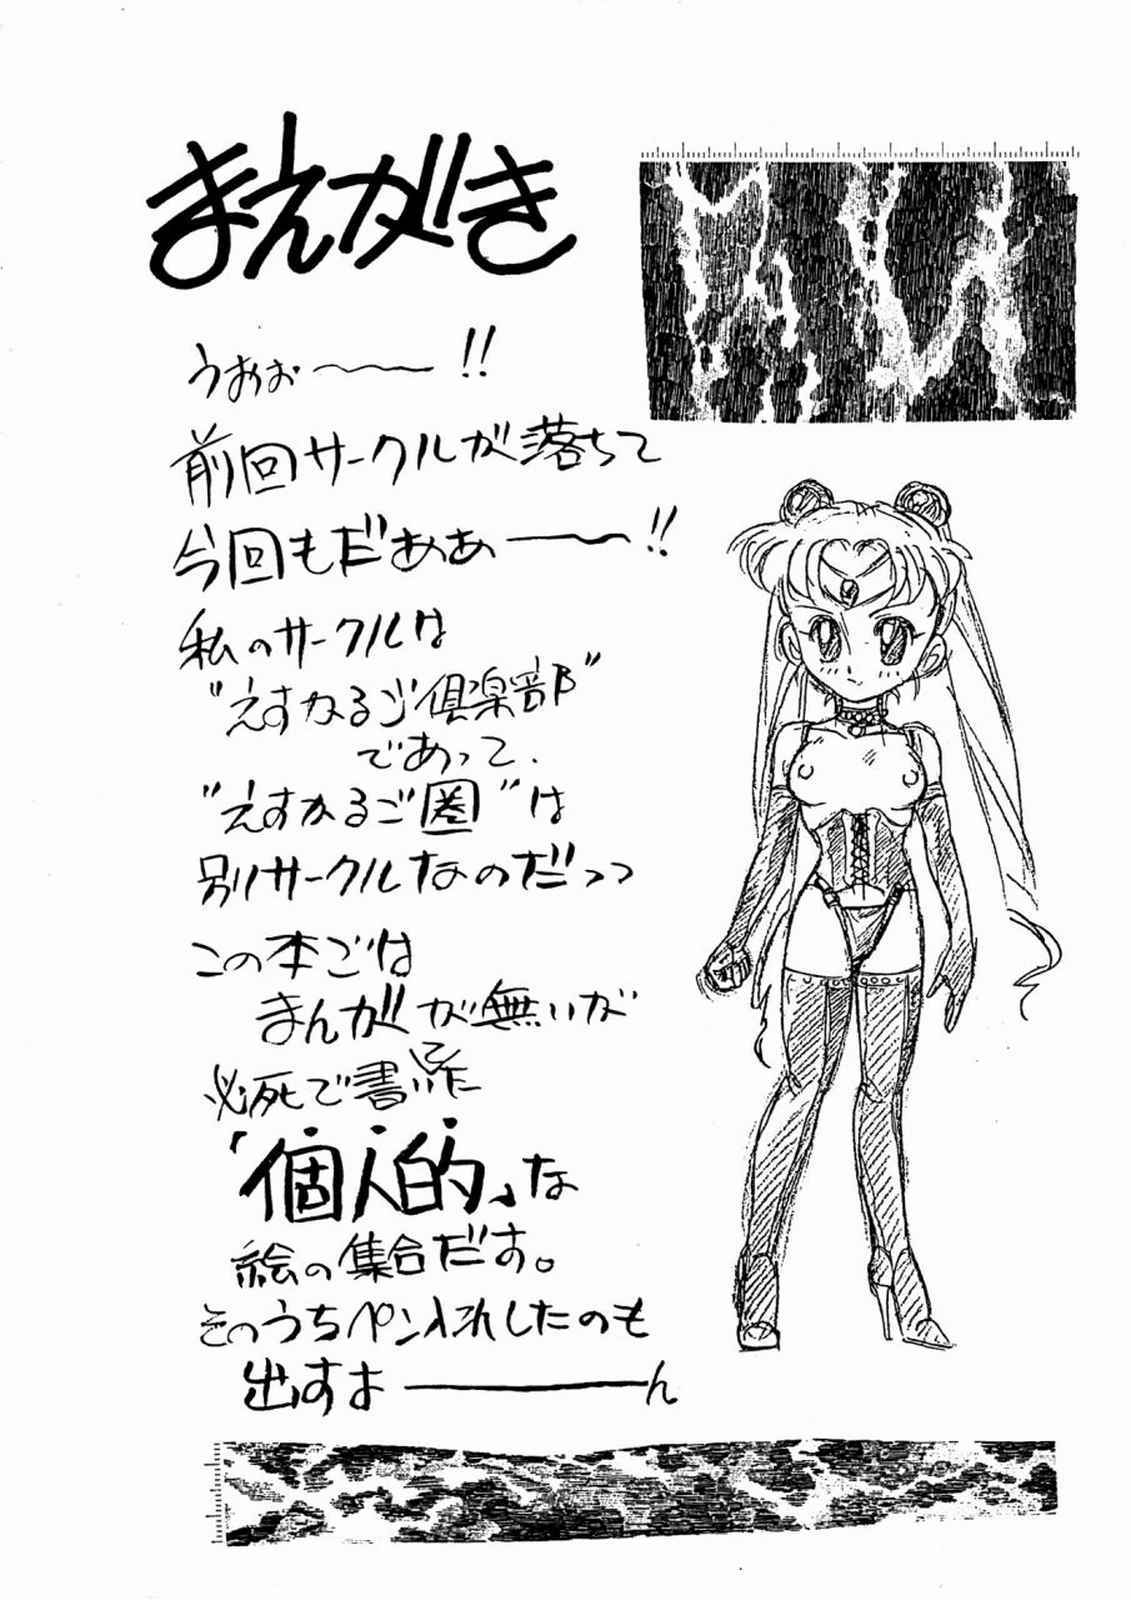 まえがき
うおぉ〜〜!!
前回サークルが落ちて
今回もだぁぁー〜!!
私のサークルは
"えすかるご倶楽部"
であって、
"えすかるご圏"は
別サークルなのだっっ
この本ごは
まんがが無いが
必死で書いた
「個人的」な
絵の集合だす。
そのうちペン入れしたのも
出すよーーん